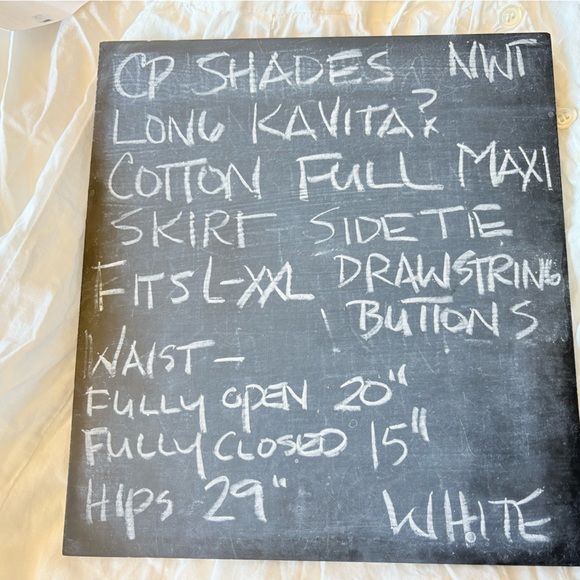 CP SHADES NWT
LONG KAVITA?
COTTON FULL MAXI
SKIRT SIDE TIE
FITS L-XXL DRAWSTRING
BUTTONS
WAIST -
FULLY OPEN 20"
FULLY CLOSED 15"
HIPS 29"
WHITE